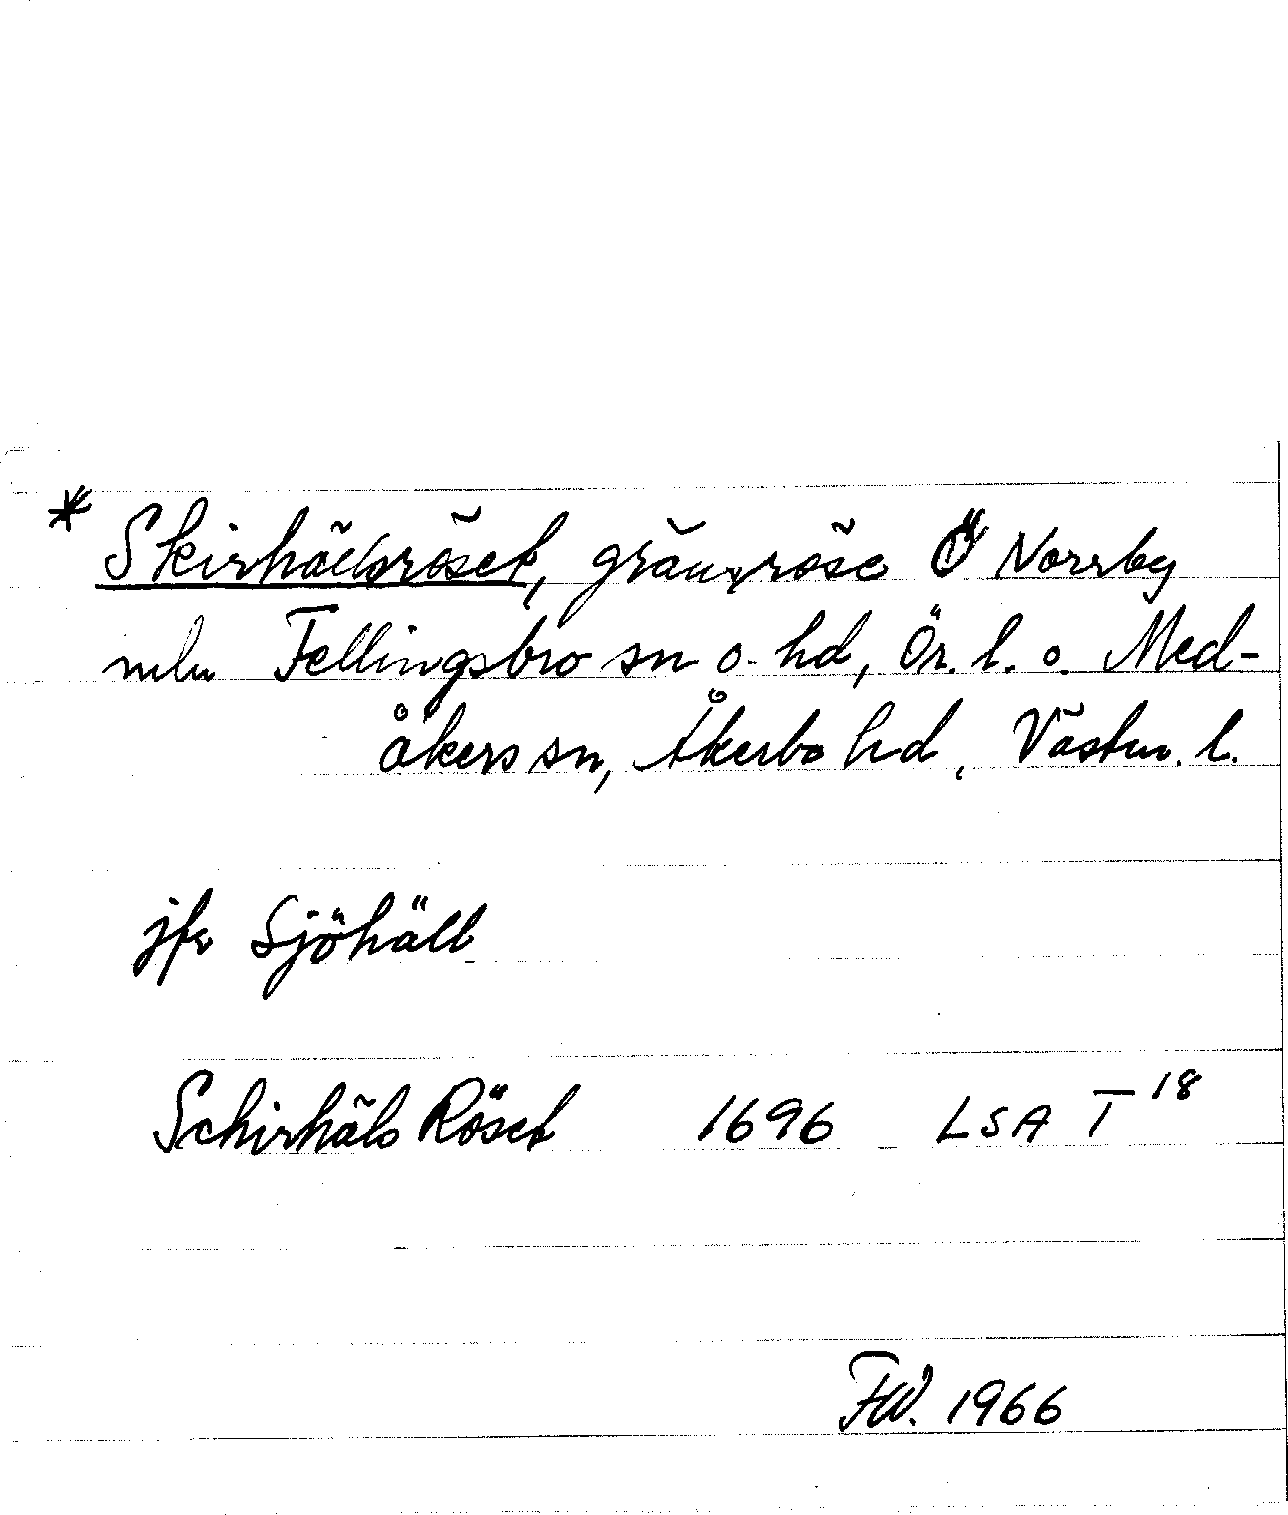 * Skirhällsröset, gränsröse Ö Norrby
mln Fellingsbro sn o. hd, Ör. l. o. Med-
åkers sn, Åkerbo hd, Västm. l.
jfr Sjöhäll
Schirhäls Röset 1696 LSA T 18
FW. 1966